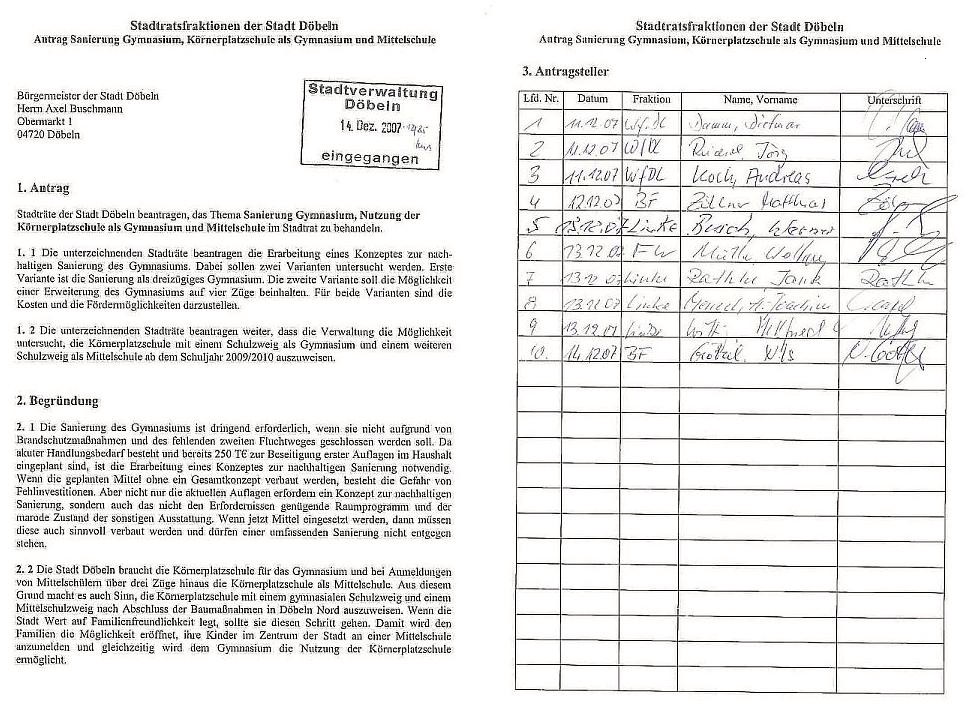 Stadtratsfraktionen der Stadt Döbeln
Antrag Sanierung Gymnasium, Körnerplatzschule als Gymnasium und Mittelschule
Bürgermeister der Stadt Döbeln
Herrn Axel Buschmann
Obermarkt 1
04720 Döbeln
Stadtverwaltung
Döbeln
14. Dez. 2007
eingegangen
1. Antrag
Stadträte der Stadt Döbeln beantragen, das Thema Sanierung Gymnasium, Nutzung der
Körnerplatzschule als Gymnasium und Mittelschule im Stadtrat zu behandeln.
1. 1 Die unterzeichnenden Stadträte beantragen die Erarbeitung eines Konzeptes zur nach-
haltigen Sanierung des Gymnasiums. Dabei sollen zwei Varianten untersucht werden. Erste
Variante ist die Sanierung als dreizügiges Gymnasium. Die zweite Variante soll die Möglichkeit
einer Erweiterung des Gymnasiums auf vier Züge beinhalten. Für beide Varianten sind die
Kosten und die Fördermöglichkeiten darzustellen.
1. 2 Die unterzeichnenden Stadträte beantragen weiter, dass die Verwaltung die Möglichkeit
untersucht, die Körnerplatzschule mit einem Schulzweig als Gymnasium und einem weiteren
Schulzweig als Mittelschule ab dem Schuljahr 2009/2010 auszuweisen.
2. Begründung
2. 1 Die Sanierung des Gymnasiums ist dringend erforderlich, wenn sie nicht aufgrund von
Brandschutzmaßnahmen und des fehlenden zweiten Fluchtweges geschlossen werden soll. Da
akuter Handlungsbedarf besteht und bereits 250 T€ zur Beseitigung erster Auflagen im Haushalt
eingeplant sind, ist die Erarbeitung eines Konzeptes zur nachhaltigen Sanierung notwendig.
Wenn die geplanten Mittel ohne ein Gesamtkonzept verbaut werden, besteht die Gefahr von
Fehlinvestitionen. Aber nicht nur die aktuellen Auflagen erfordern ein Konzept zur nachhaltigen
Sanierung, sondern auch das nicht den Erfordernissen genügende Raumprogramm und der
marode Zustand der sonstigen Ausstattung. Wenn jetzt Mittel eingesetzt werden, dann müssen
diese auch sinnvoll verbaut werden und dürfen einer umfassenden Sanierung nicht entgegen
stehen.
2. 2 Die Stadt Döbeln braucht die Körnerplatzschule für das Gymnasium und bei Anmeldungen
von Mittelschülern über drei Züge hinaus die Körnerplatzschule als Mittelschule. Aus diesem
Grund macht es auch Sinn, die Körnerplatzschule mit einem gymnasialen Schulzweig und einem
Mittelschulzweig nach Abschluss der Baumaßnahmen in Döbeln Nord auszuweisen. Wenn die
Stadt Wert auf Familienfreundlichkeit legt, sollte sie diesen Schritt gehen. Damit wird den
Familien die Möglichkeit eröffnet, ihre Kinder im Zentrum der Stadt an einer Mittelschule
anzumelden und gleichzeitig wird dem Gymnasium die Nutzung der Körnerplatzschule
ermöglicht.
Stadtratsfraktionen der Stadt Döbeln
Antrag Sanierung Gymnasium, Körnerplatzschule als Gymnasium und Mittelschule
3. Antragsteller
Lfd. Nr. Datum Fraktion Name, Vorname Unterschrift
1 11.12.07 WfDL Damm, Dietmar
2 11.12.07 WfDL Jörg
3 11.12.07 WfDL Koch, Andreas
4 12.12.07 BF Matthias
5 13.12.07 Linke Werner
6 13.12.07
7 13.12.07 Linke
8 13.12.07 Linke
9 13.12.07 Linke
10. 14.12.07 BF